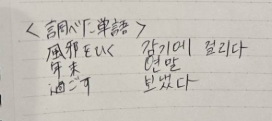 <調べた単語>
風邪をひく 감기에 걸리다
年末 연말
過ごす 보냈다